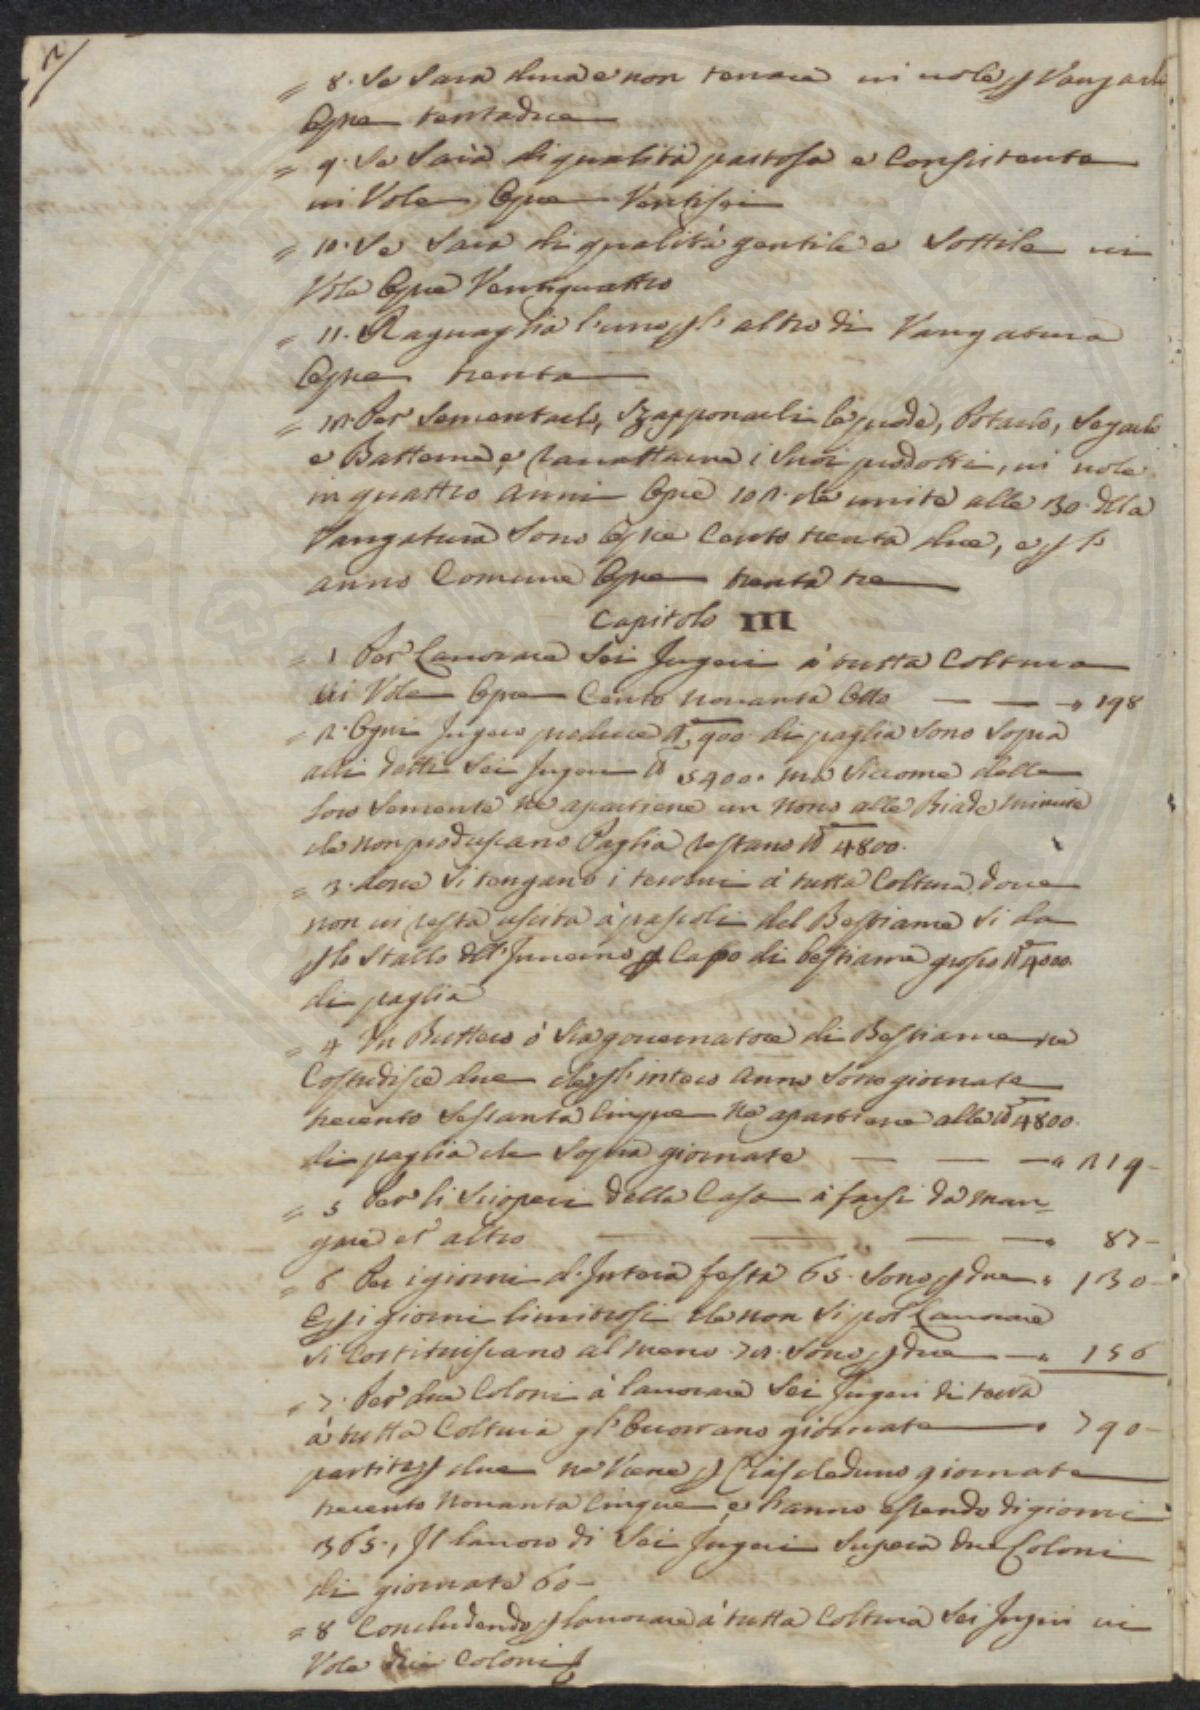 2
= 8. Se sarà dura e non tenace vi vole p Vangarlo
Opre trentadue
= 9. Se sarà di qualità pastosa e Consistente
vi Vole Opre Ventisei
= 10. Se sarà di qualità gentile e sottile vi
Vole Opre Ventiquattro
= 11. Raguaglia l'uno p l'altro di Vangatura
Opre trenta
= 12. Per sementarlo, Zapponarli le prode, Potarlo, Segarlo
e Batterne, e racattarne i suoi prodotti, vi vole
in quattro anni Opre 102. che unite alle 30. della
Vangatura Sono Opre Cento trenta due, e p l'
anno Comune Opre trenta tre
Capitolo III
= 1 Per Lavorare Sei Jugeri à tutta Coltura
vi Vole Opre Cento novanta Otto — — — " 198
= 2. Ogni Jugero produce lb 900. di paglia sono sopra
alli detti sei Jugeri lb 5400. ma siccome delle
loro semente ne apartiene un nono alle Biade minute
che non producano Paglia restano lb 4800.
= 3. dove si tengano i terreni à tutta Coltura, dove
non vi resta uscita à pascoli del Bestiame si da
p lo stallo dell'Inverno p Capo di bestiame grosso lb 4000.
di paglia
= 4 Un Buttero ò sia governatore di Bestiame ne
Costudisce due che p l'intero anno sono giornate
trecento sessanta cinque ne apartiene alle lb 4800.
di paglia che sopra giornate — — — " 219 -
= 5 Per li scioperi della Casa à farsi da man=
gare et altro — — — " 87 -
= 6 Per i giorni d'Intera festa 65. sono p due " 130 -
E p i giorni limitrosi che non si pol Lavorare
si costituiscano al meno 78. sono p due — " 156
= 7. Per due Coloni à lavorare Sei Jugeri di terra
à tutta Coltura gl'Occorrano giornate — " 790 -
partite p due ne viene p Ciascheduno giornate
trecento novanta cinque e l'anno essendo di giorni
365., Il lavoro di Sei Jugeri supera due Coloni
di giornate 60 -
= 8 Concludendo p lavorare à tutta Coltura Sei Jugeri vi
Vole due Coloni